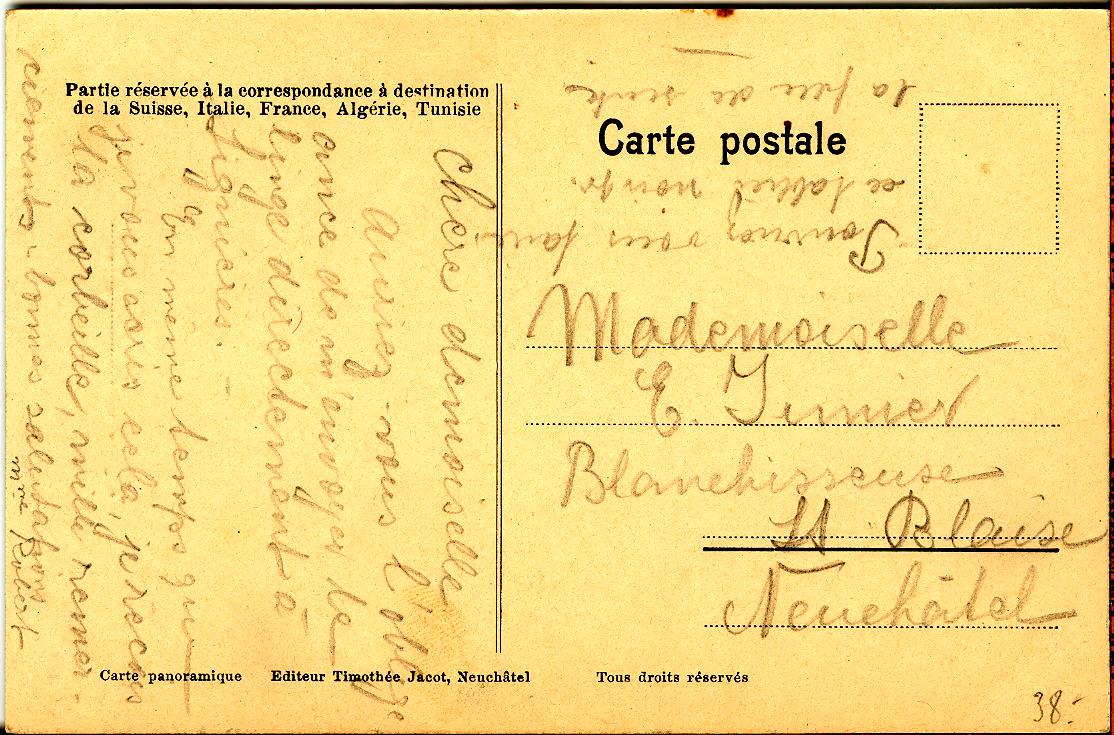 Partie réservée à la correspondance à destination
de la Suisse, Italie, France, Algérie, Tunisie
Carte postale
Chère demoiselle
Auriez-vous l'oblige
ance de m'envoyer le
linge directement à
Lignières. –
En même temps que
je vous écris cela, je reçois
la corbeille, mille remer-
ciements – bonnes salutations
Mme Robert
Pourriez vous faire
ce tablier noir pr.
la fin de
Mademoiselle
E. Junier
Blanchisseuse
St Blaise
Neuchâtel
Carte panoramique Editeur Timothée Jacot, Neuchâtel Tous droits réservés
38.-